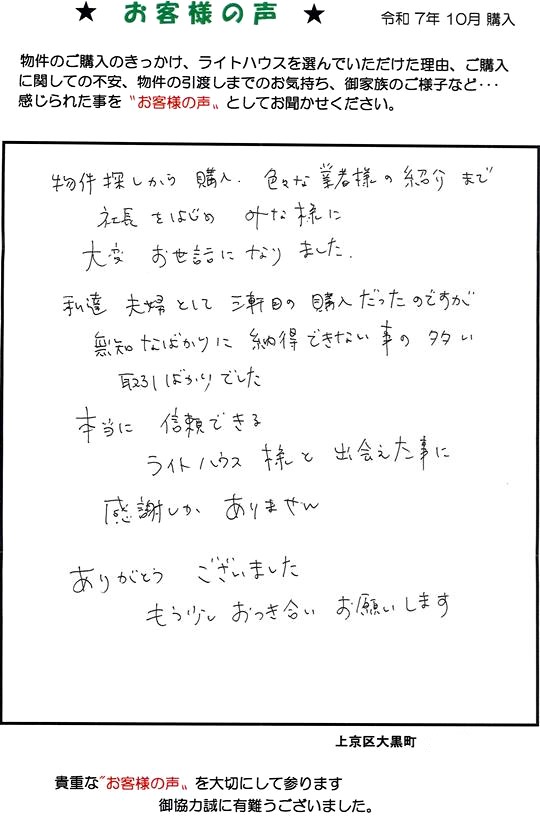 ★ お客様の声 ★ 令和7年10月購入
物件のご購入のきっかけ、ライトハウスを選んでいただけた理由、ご購入
に関しての不安、物件の引渡しまでのお気持ち、御家族のご様子など･･･
感じられた事を〝お客様の声〟としてお聞かせください。
物件探しから 購入. 色々な業者様の紹介まで
社長をはじめ みな様に
大変 お世話になりました.
私達 夫婦として 三軒目の購入だったのですが
無知なばかりに 納得できない事の多い
取引ばかりでした
本当に 信頼できる
ライトハウス 様と 出会えた事に
感謝しか ありません
ありがとう ございました
もう少し おつき合い お願いします
上京区大黒町
貴重な〝お客様の声〟を大切にして参ります
御協力誠に有難うございました。